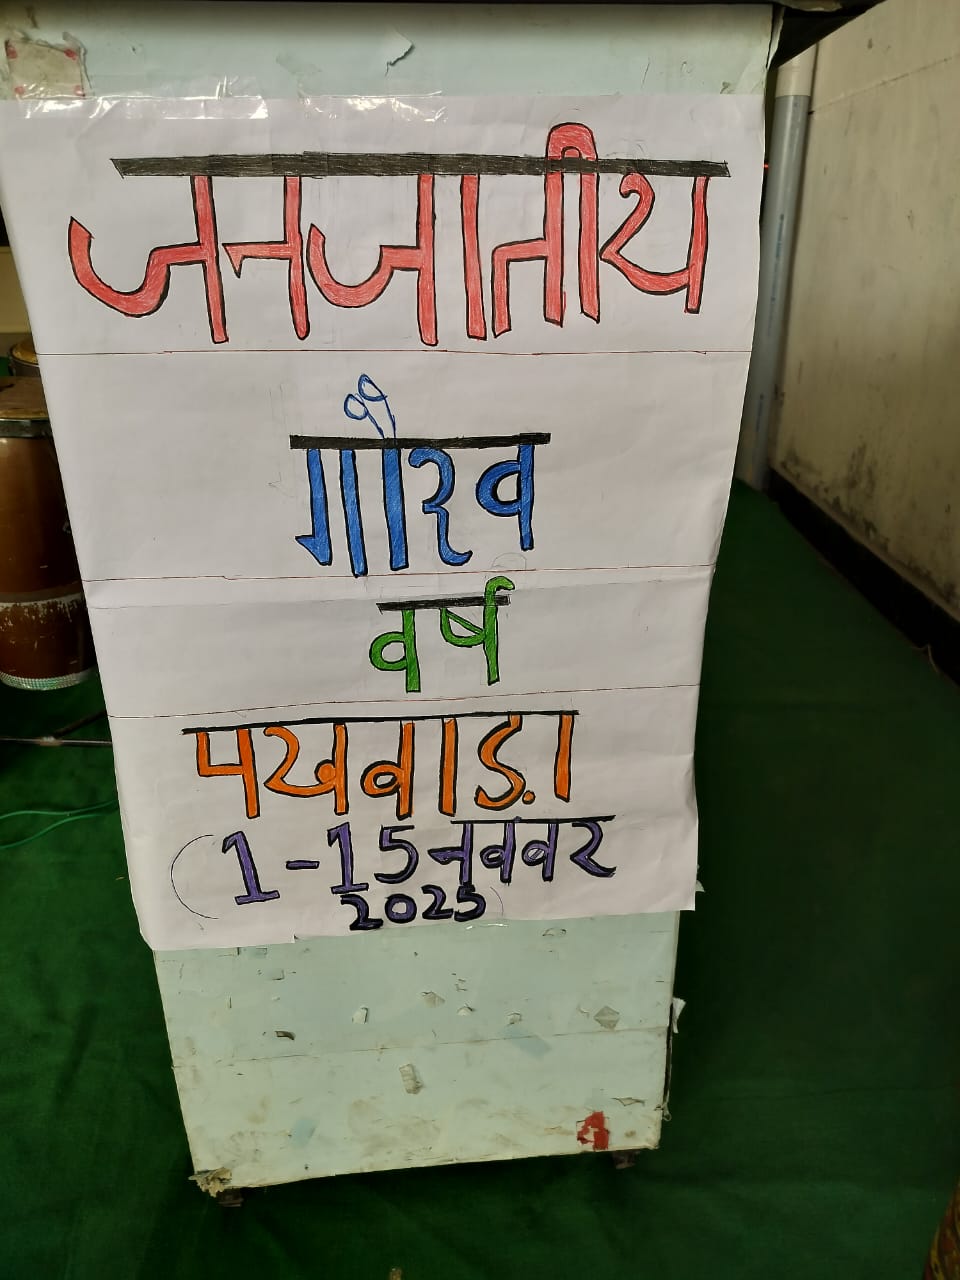 जनजातीय
गौरव
वर्ष
पखवाड़ा
(1-15 नवबर
2025)
A